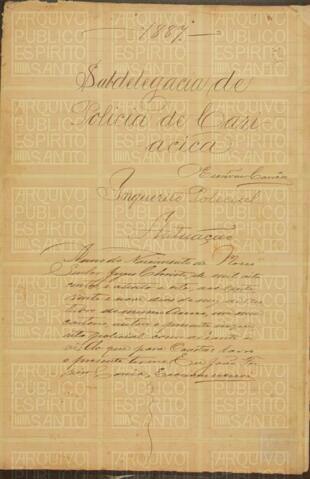 1887
Subdelegacia de
Policia de Cari-
acica
Escrivão Corrêa
Inquerito Policial
Autuação
Anno do Nascimento de Nosso
Senhor Jesus Christo de mil oito
centos e oitenta e sete, aos
e nove dias do mez de
do mesmo Anno, em meu
cartorio autuo o presente inque-
rito policial como adiante
se vê. Do que para constar lavro
o presente termo. Eu João
Corrêa, Escrivão escrevi
ARQUIVO
PÚBLICO
ESPÍRITO
SANTO